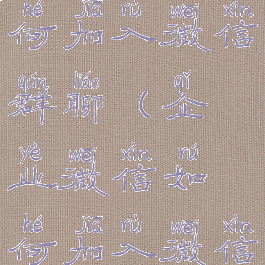 hé jiā rù wēi xìn
何加入微信
qún liáo qǐ
群聊（企
yè wēi xìn rú
业微信如
hé jiā rù wēi xìn
何加入微信